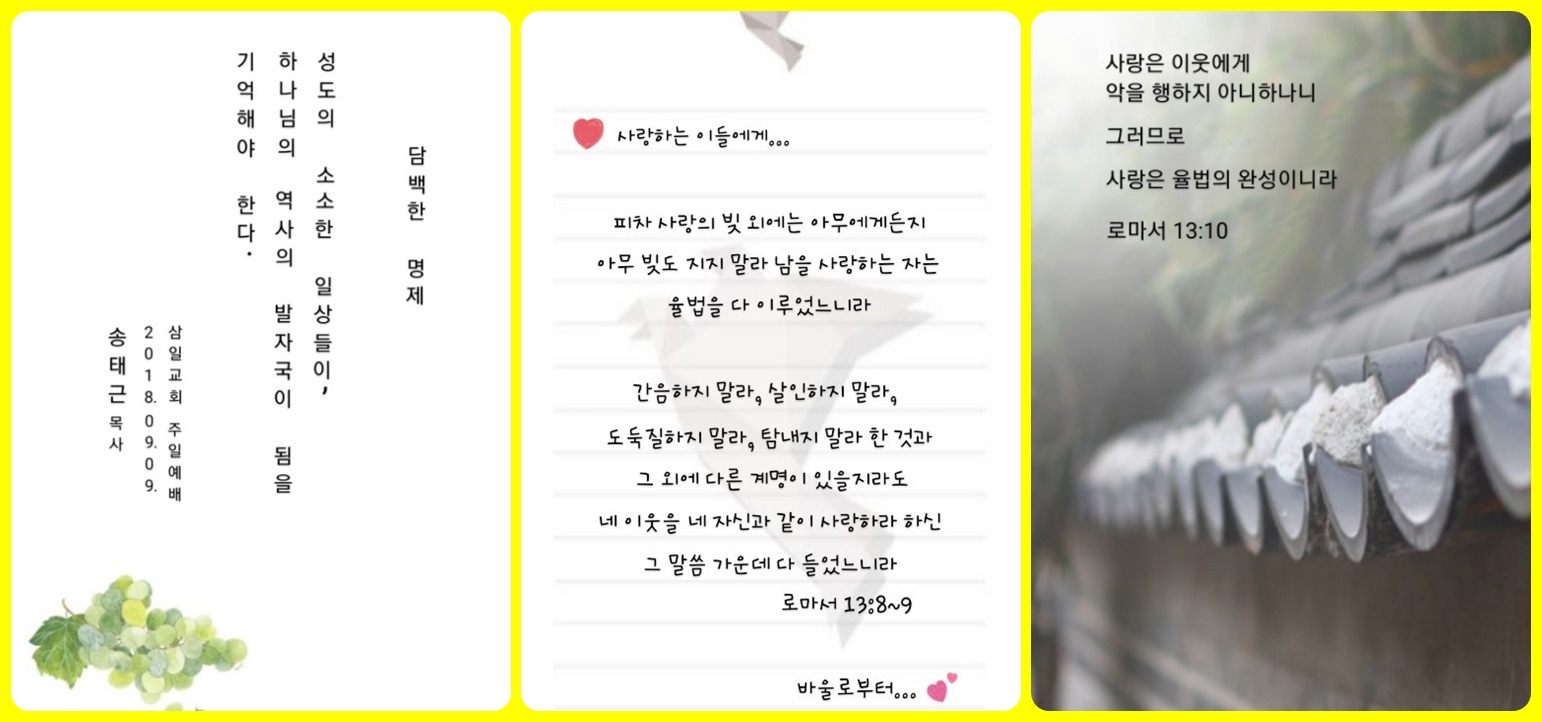 담백한 명제
성도의 소소한 일상들이,
하나님의 역사의 발자국이 됨을
기억해야 한다.
삼일교회 주일예배
2018.09.09.
송태근 목사
사랑하는 이들에게...
피차 사랑의 빚 외에는 아무에게든지
아무 빚도 지지 말라 남을 사랑하는 자는
율법을 다 이루었느니라
간음하지 말라, 살인하지 말라,
도둑질하지 말라, 탐내지 말라 한 것과
그 외에 다른 계명이 있을지라도
네 이웃을 네 자신과 같이 사랑하라 하신
그 말씀 가운데 다 들었느니라
로마서 13:8~9
바울로부터...
사랑은 이웃에게
악을 행하지 아니하나니
그러므로
사랑은 율법의 완성이니라
로마서 13:10